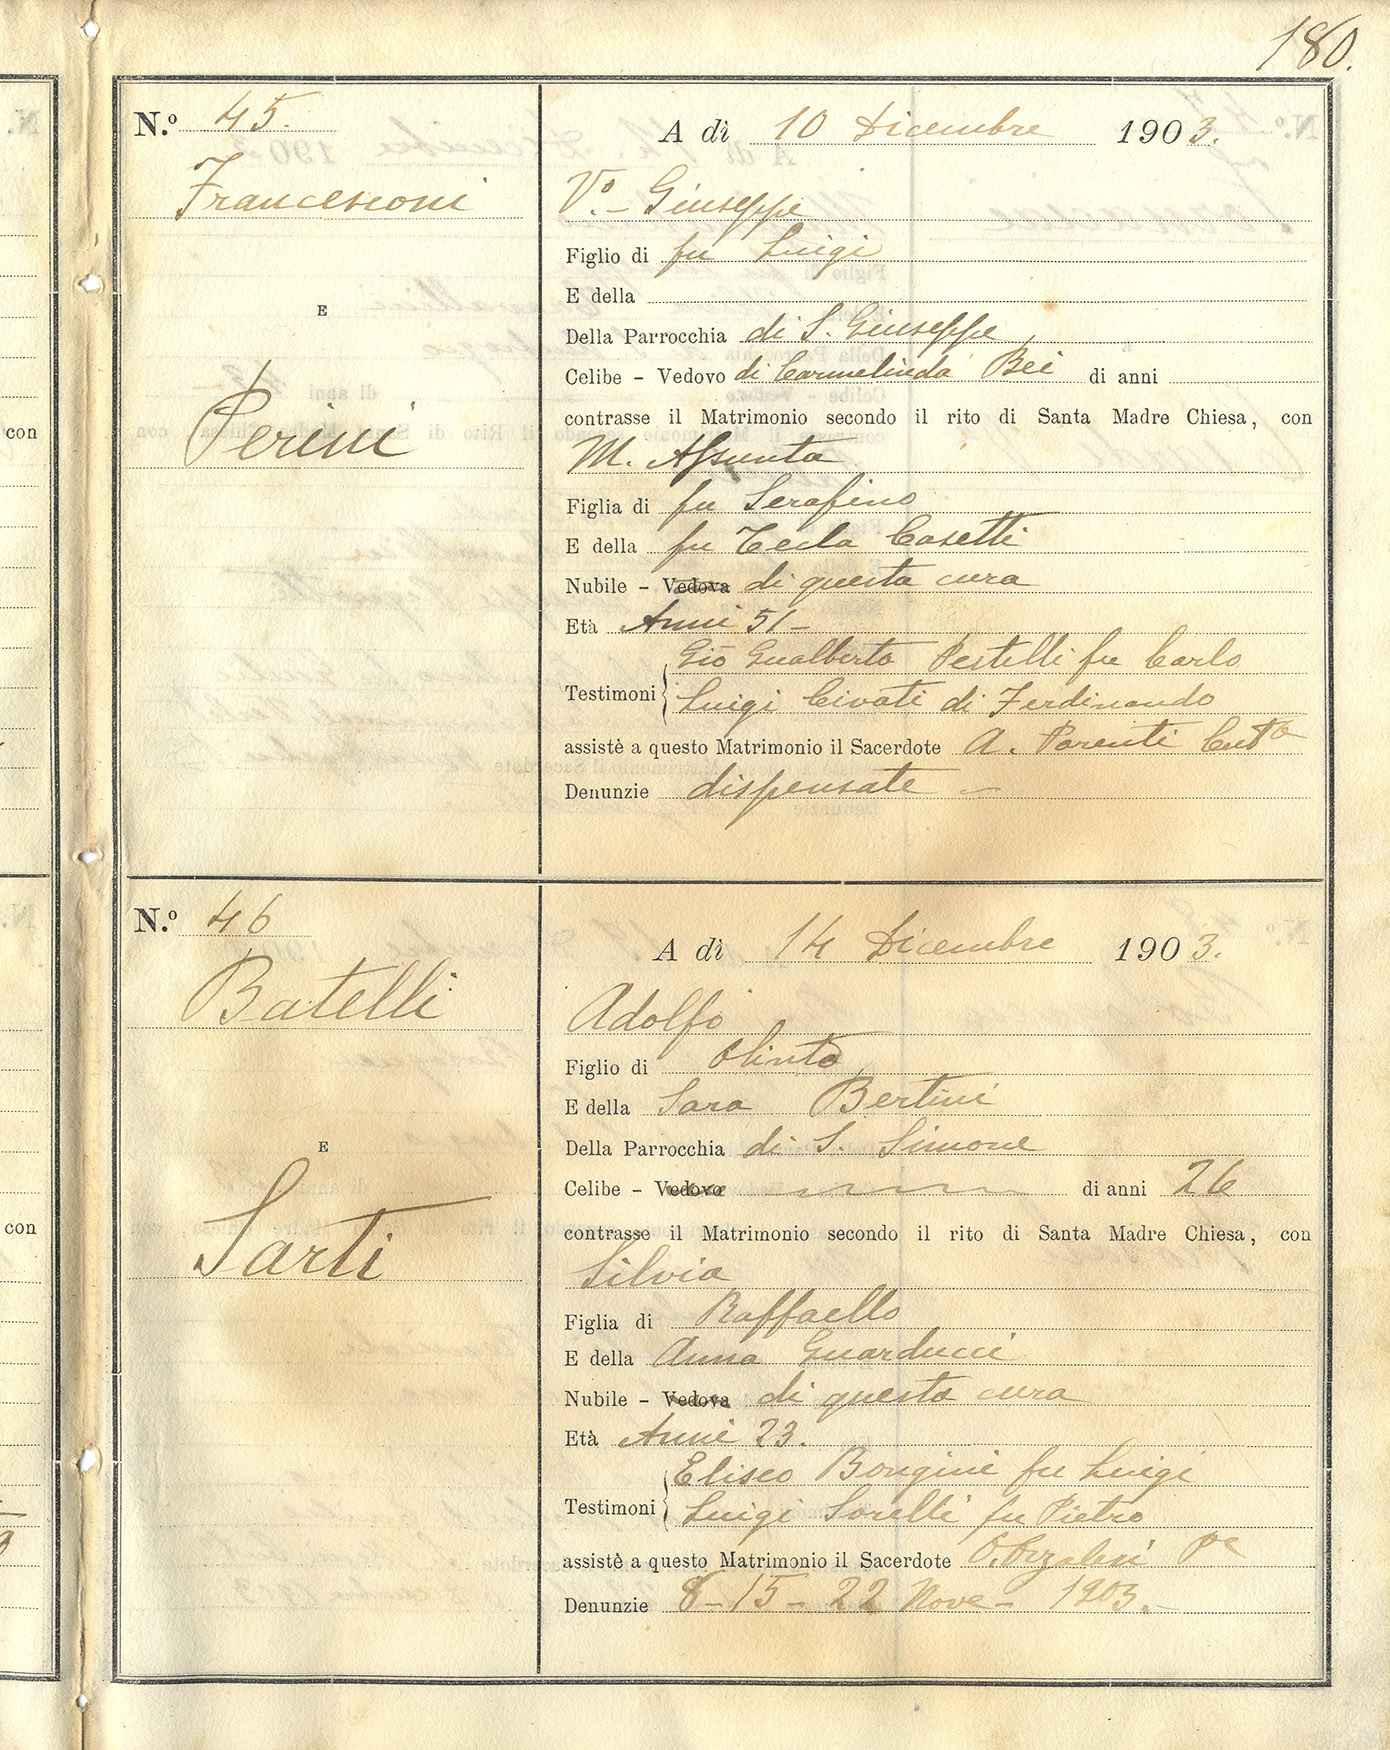 180.
N.º 45.
A dì 10 Dicembre 1903.
Francesconi
V.º - Giuseppe
Figlio di fu Luigi
E della
E
Della Parrocchia di S. Giuseppe
Celibe - Vedovo di Carmelinda Bei di anni
contrasse il Matrimonio secondo il rito di Santa Madre Chiesa, con
Perini
M. Assunta
Figlia di fu Serafino
E della fu Tecla Casetti
Nubile - Vedova di questa cura
Età Anni 51-
Gio Gualberto Pestelli fu Carlo
Testimoni
Luigi Civati di Ferdinando
assistè a questo Matrimonio il Sacerdote A. Parenti
Denunzie dispensate -
N.º 46
A dì 14 Dicembre 1903.
Batelli
Adolfo
Figlio di Olinto
E della Sara Bertini
E
Della Parrocchia di S. Simone
Celibe - Vedovo di anni 26
contrasse il Matrimonio secondo il rito di Santa Madre Chiesa, con
Sarti
Silvia
Figlia di Raffaello
E della Anna Guarducci
Nubile - Vedova di questa cura
Età Anni 23.
Eliseo Bongini fu Luigi
Testimoni
Luigi Sorelli fu Pietro
assistè a questo Matrimonio il Sacerdote
Denunzie 8-15-22 Nove- 1903.-
con
con